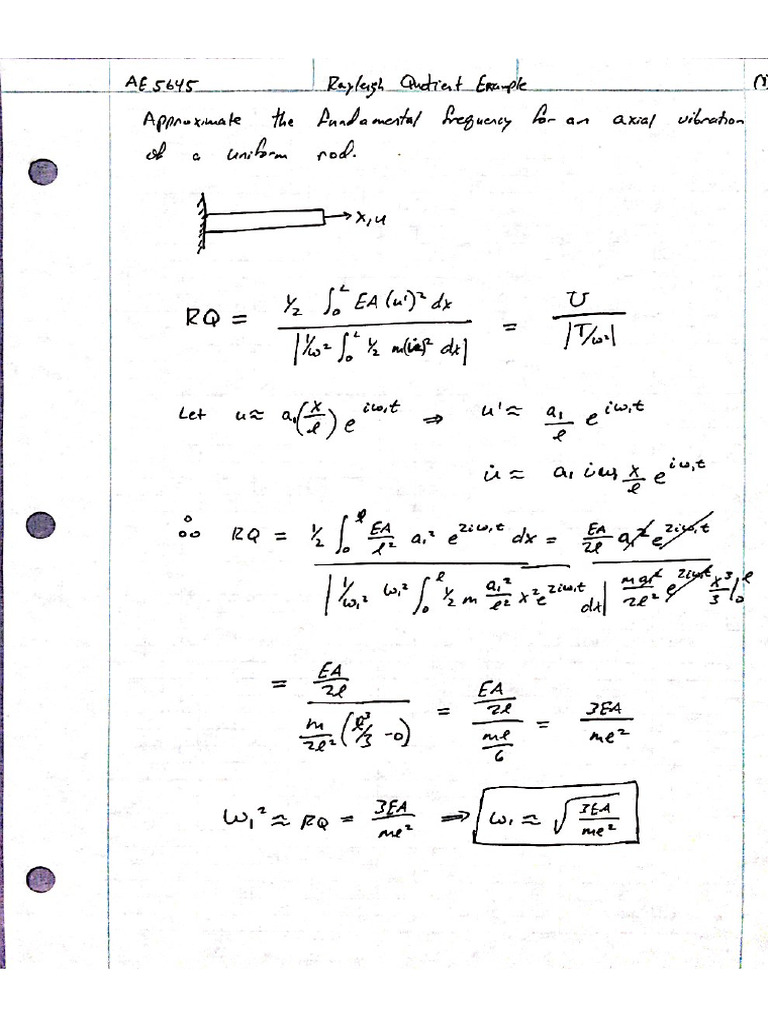 AE 5645 Rayleigh Quotient Example (1)
Approximate the fundamental frequency for an axial vibration
of a uniform rod.
x, u
RQ = ½ ∫₀ᴸ EA (u')² dx / |1/ω² ∫₀ᴸ ½ m(u̇)² dx| = U / |T/ω²|
Let u ≈ a₁(x/ℓ) e^{iω₁t} ⇒ u' ≈ a₁/ℓ e^{iω₁t}
u̇ ≈ a₁ iω₁ x/ℓ e^{iω₁t}
∴ RQ = ½ ∫₀^ℓ EA/ℓ² a₁² e^{2iω₁t} dx / |1/ω₁² ω₁² ∫₀^ℓ ½ m a₁²/ℓ² x² e^{2iω₁t} dx| = EA/2ℓ a₁² e^{2iω₁t} / m a₁²/2ℓ² e^{2iω₁t} x³/3 |₀^ℓ
= EA/2ℓ / m/2ℓ² (ℓ³/3 - 0) = EA/2ℓ / mℓ/6 = 3EA/mℓ²
ω₁² ≈ RQ = 3EA/mℓ² ⇒ ω₁ ≈ √(3EA/mℓ²)